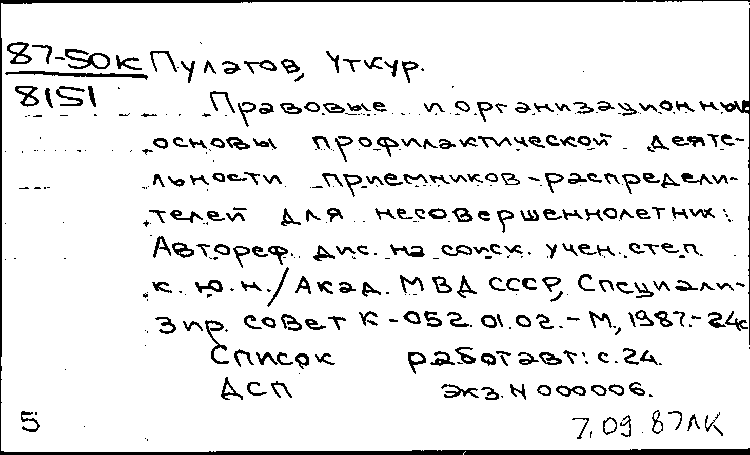 87-50к Пулатов, Уткур.
8151 Правовые и организационные
основы профилактической деяте-
льности приемников-распредели-
телей для несовершеннолетних:
Автореф. дис. на соиск. учен. степ.
к. ю. н./ Акад. МВД СССР, Специали-
зир. совет К-052.01.02.-М., 1987.-24с
Список работ авт: с.24.
ДСП экз. N 000006.
5 7.09.87 ЛК